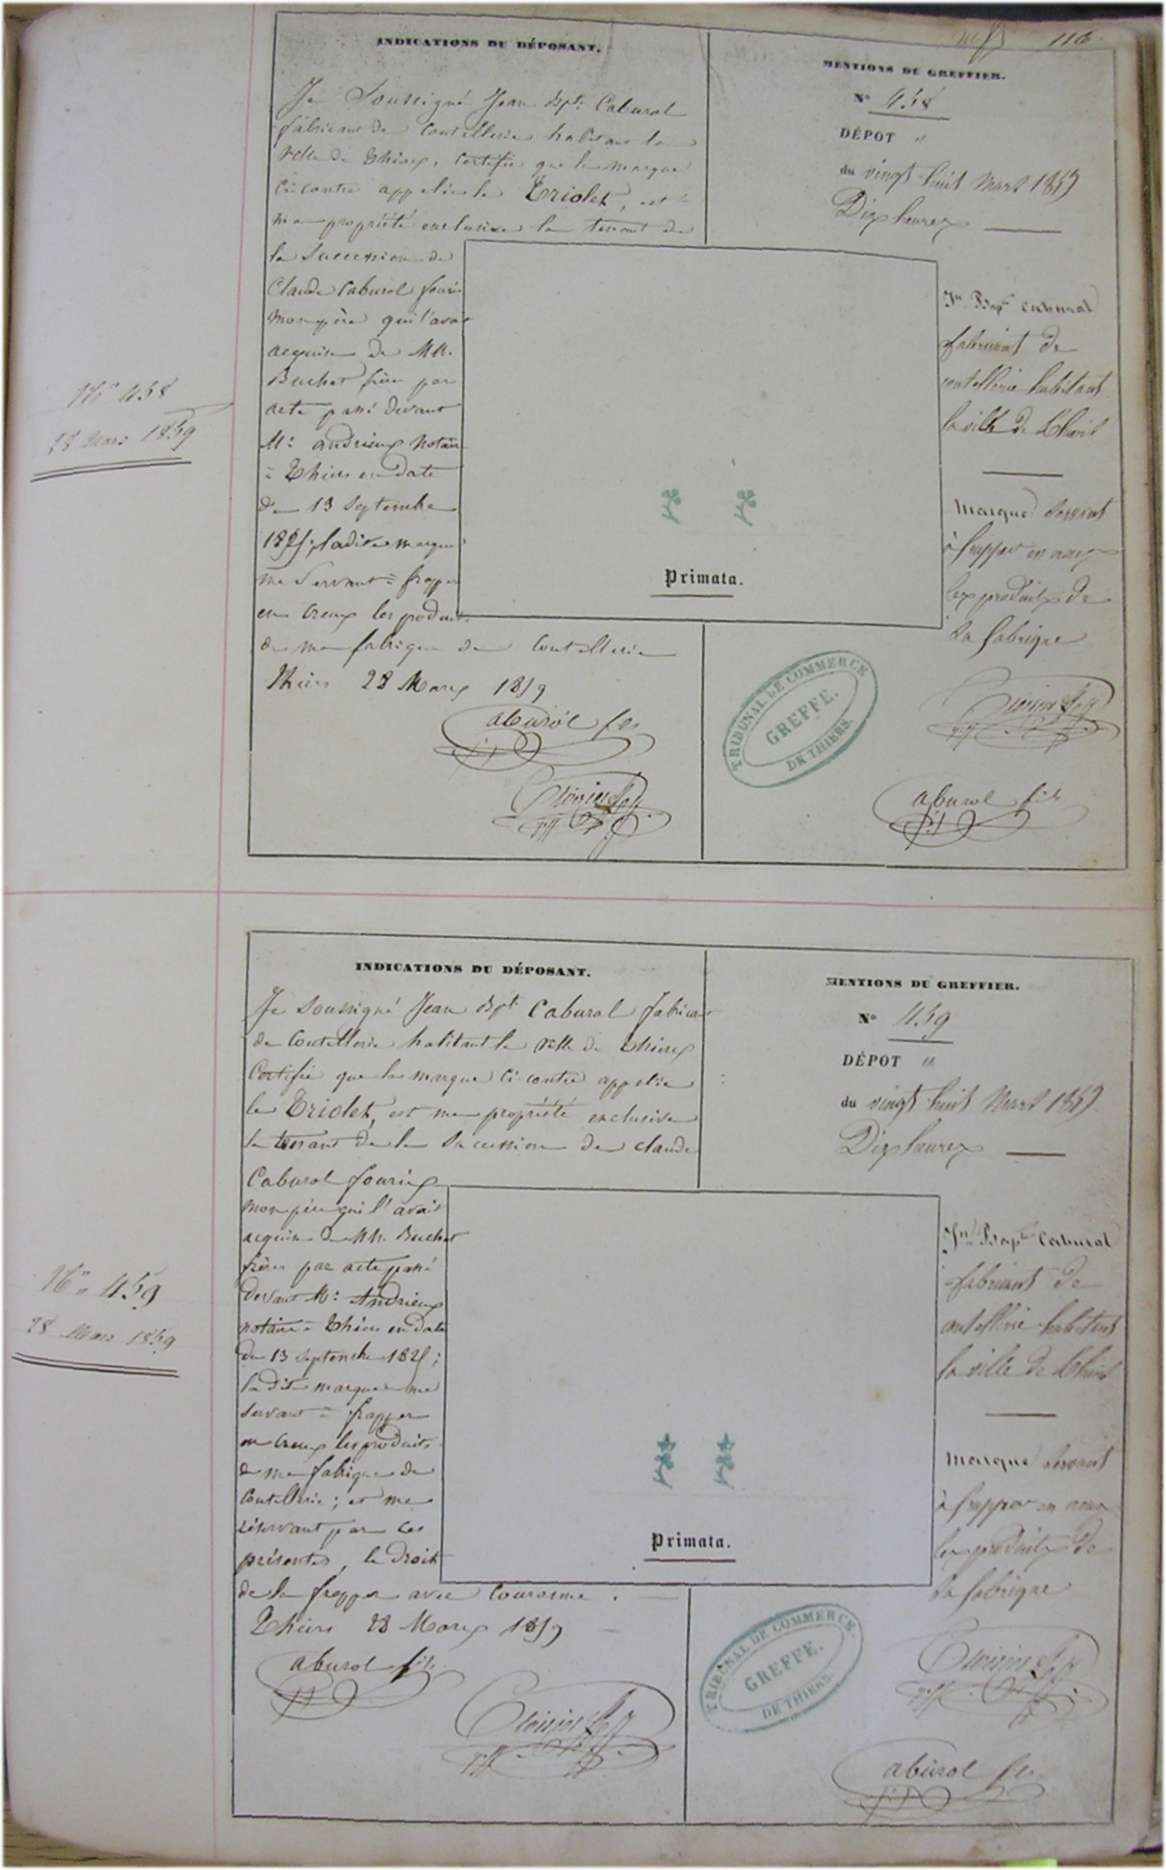 116
INDICATIONS DU DÉPOSANT.
Je Soussigné Jean Bpte Cabural
fabricant de Coutellerie habitant la
ville de Thiers, certifie que la marque
ci contre appelée le Triolet, est
ma propriété exclusive la tenant de
la Succession de
Claude Cabural
mon père qui l'avait
acquise de MM.
Buchet frères par
acte passé devant
Me andrieux Notaire
à Thiers en date
du 13 Septembre
ladite marque
me Servant à frapper
en Creux les produits
de ma fabrique de Coutellerie
Thiers 28 Mars 1859
MENTIONS DU GREFFIER.
N° 458
DÉPOT
du vingt huit Mars 1859
Dix heures
Jn Bapte Cabural
fabricant de
coutellerie habitant
la ville de Thiers
Marque Servant
à frapper en creux
les produits de
sa fabrique
Primata.
TRIBUNAL DE COMMERCE
GREFFE.
DE THIERS.
N° 458
28 Mars 1859
INDICATIONS DU DÉPOSANT.
Je Soussigné Jean Bpte Cabural fabricant
de Coutellerie habitant la ville de Thiers
Certifie que la marque ci contre appelée
le Triolet, est ma propriété exclusive
la tenant de la Succession de claude
Cabural
mon père qui l'avait
acquise de MM. Buchet
frères par acte passé
devant Me Andrieux
notaire à Thiers en date
du 13 Septembre
la dite marque me
servant à frapper
en Creux les produits
de ma fabrique de
Coutellerie; et me
réservant par ces
présentes, le droit
de la frapper avec Couronne.
Thiers 28 Mars 1859
MENTIONS DU GREFFIER.
N° 459
DÉPOT
du vingt huit Mars 1859
Dix heures
Jn Bapte Cabural
fabricant de
coutellerie habitant
la ville de Thiers
Marque Servant
à frapper en creux
les produits de
sa fabrique
Primata.
TRIBUNAL DE COMMERCE.
GREFFE.
DE THIERS.
N° 459
28 Mars 1859